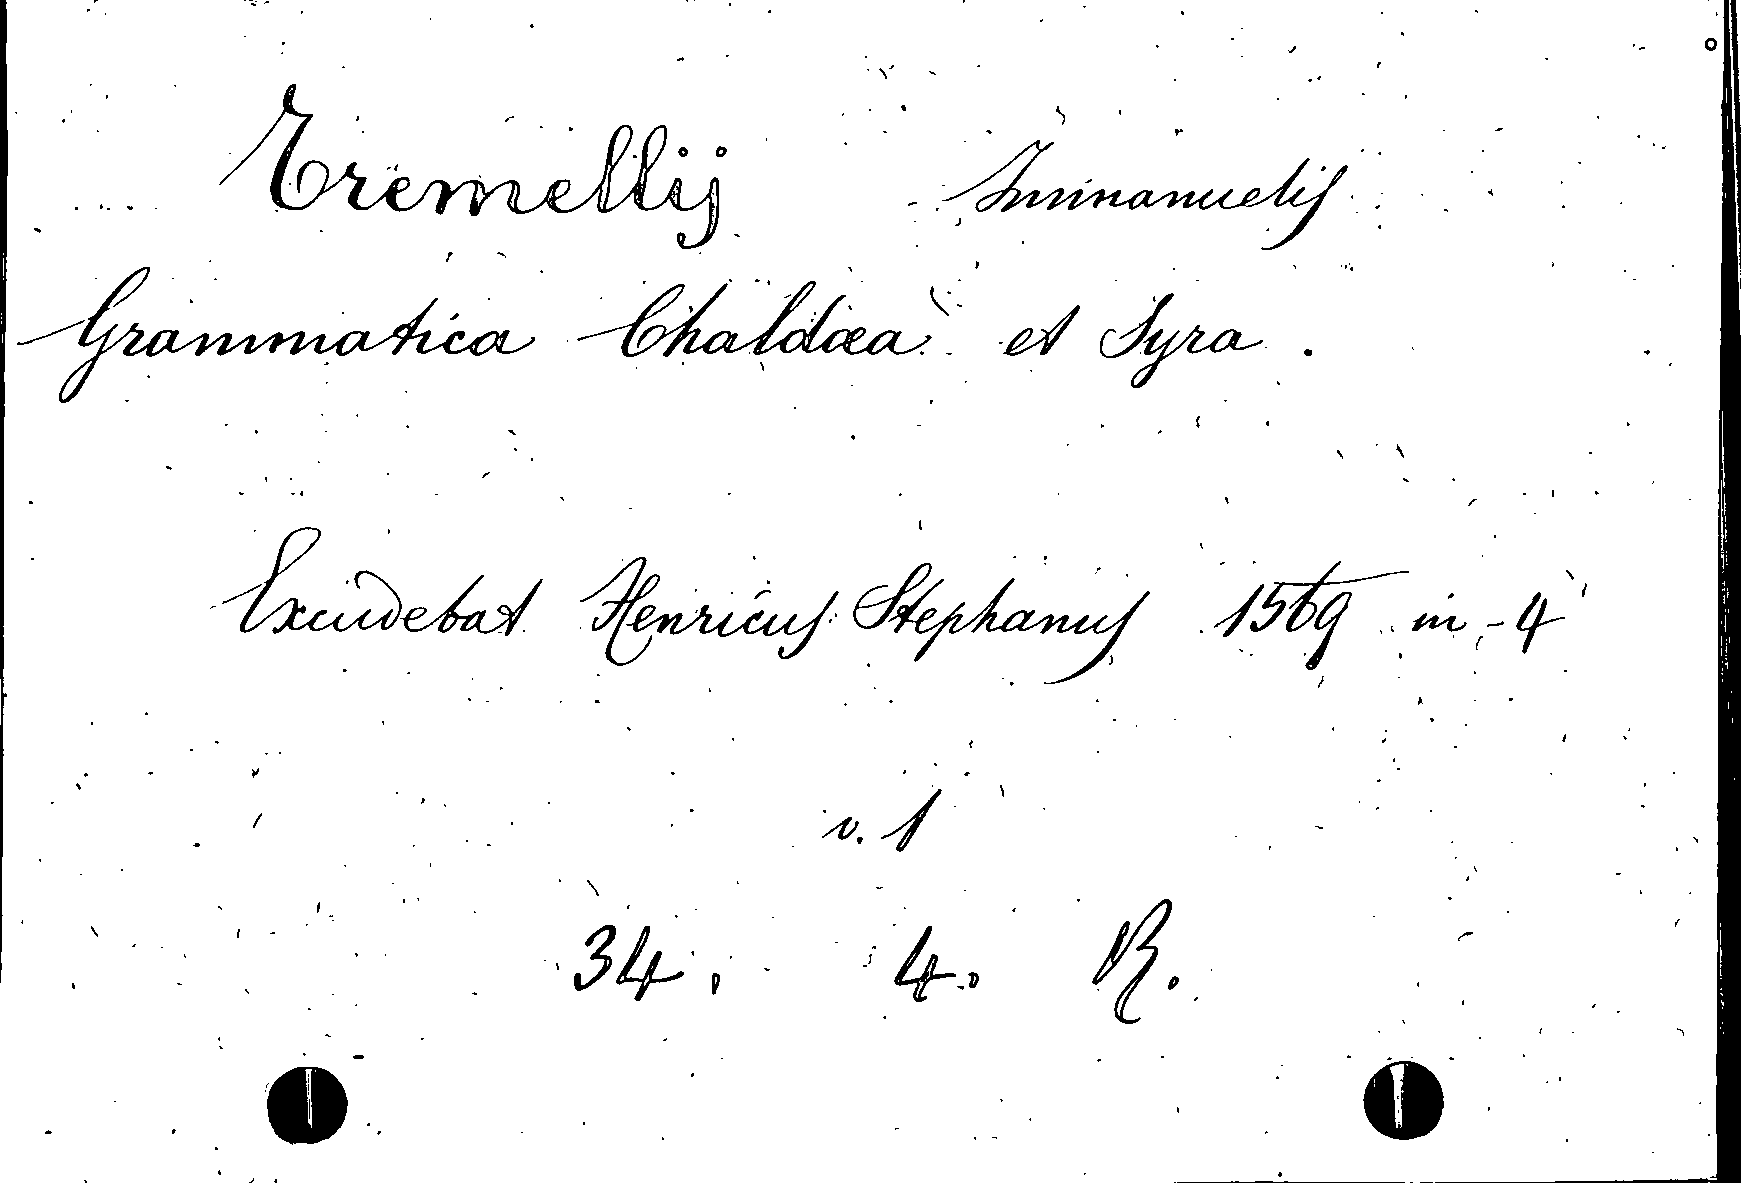 Tremellij Immanuelis
Grammatica Chaldæa et Syra.
Excudebat Henricus Stephanus 1569 in-4
v. 1
34. 4. R.